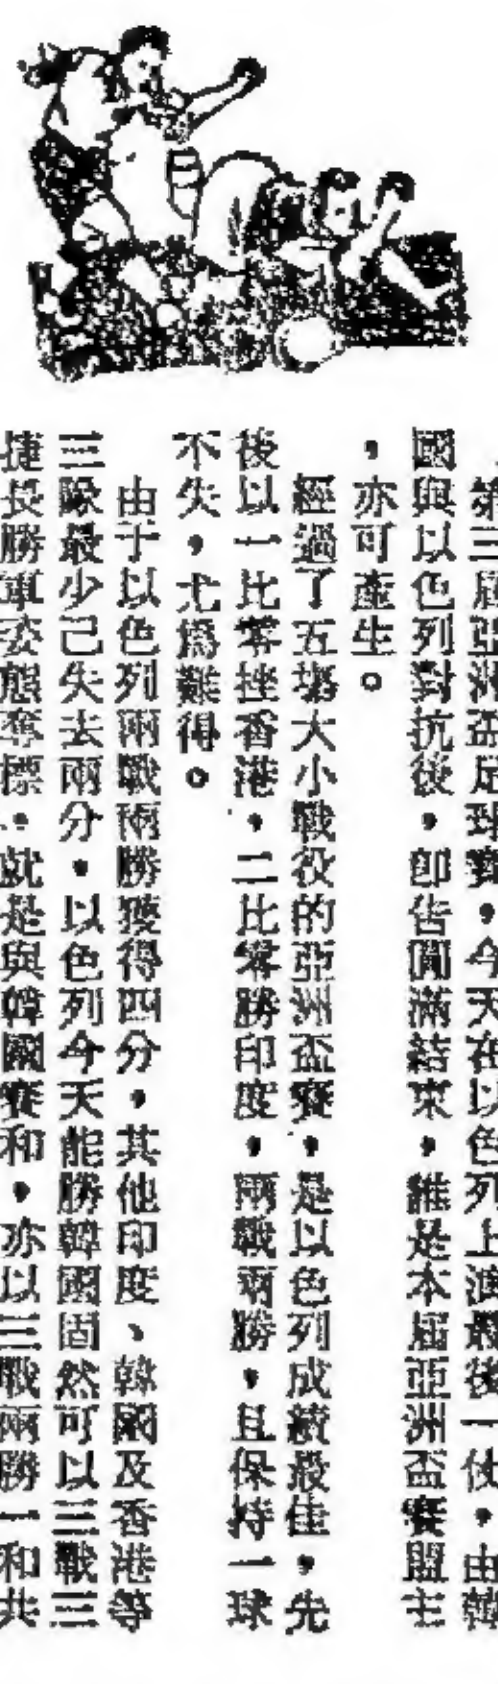 第三屆亞洲盃足球賽，今天在以色列上演最後一仗，由韓
國與以色列對抗後，即告圓滿結束，誰是本屆亞洲盃賽盟主
，亦可產生。
經過了五場大小戰役的亞洲盃賽，是以色列成績最佳，先
後以一比零挫香港，二比零勝印度，兩戰兩勝，且保持一球
不失，尤爲難得。
由于以色列兩戰兩勝獲得四分，其他印度、韓國及香港等
三隊最少己失去兩分，以色列今天能勝韓國固然可以三戰三
捷長勝軍姿態奪標，就是與韓國賽和，亦以三戰兩勝一和共